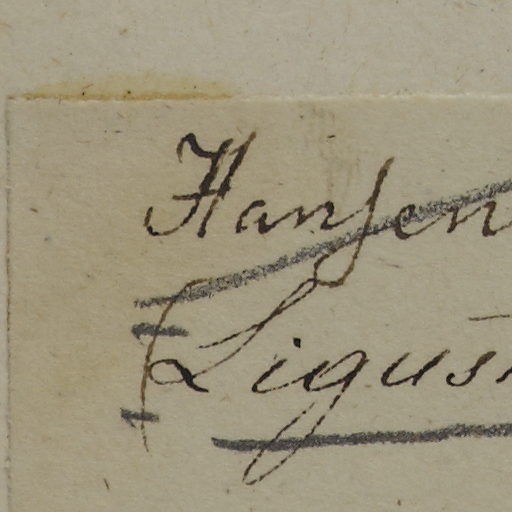 Hansen
(Ligus